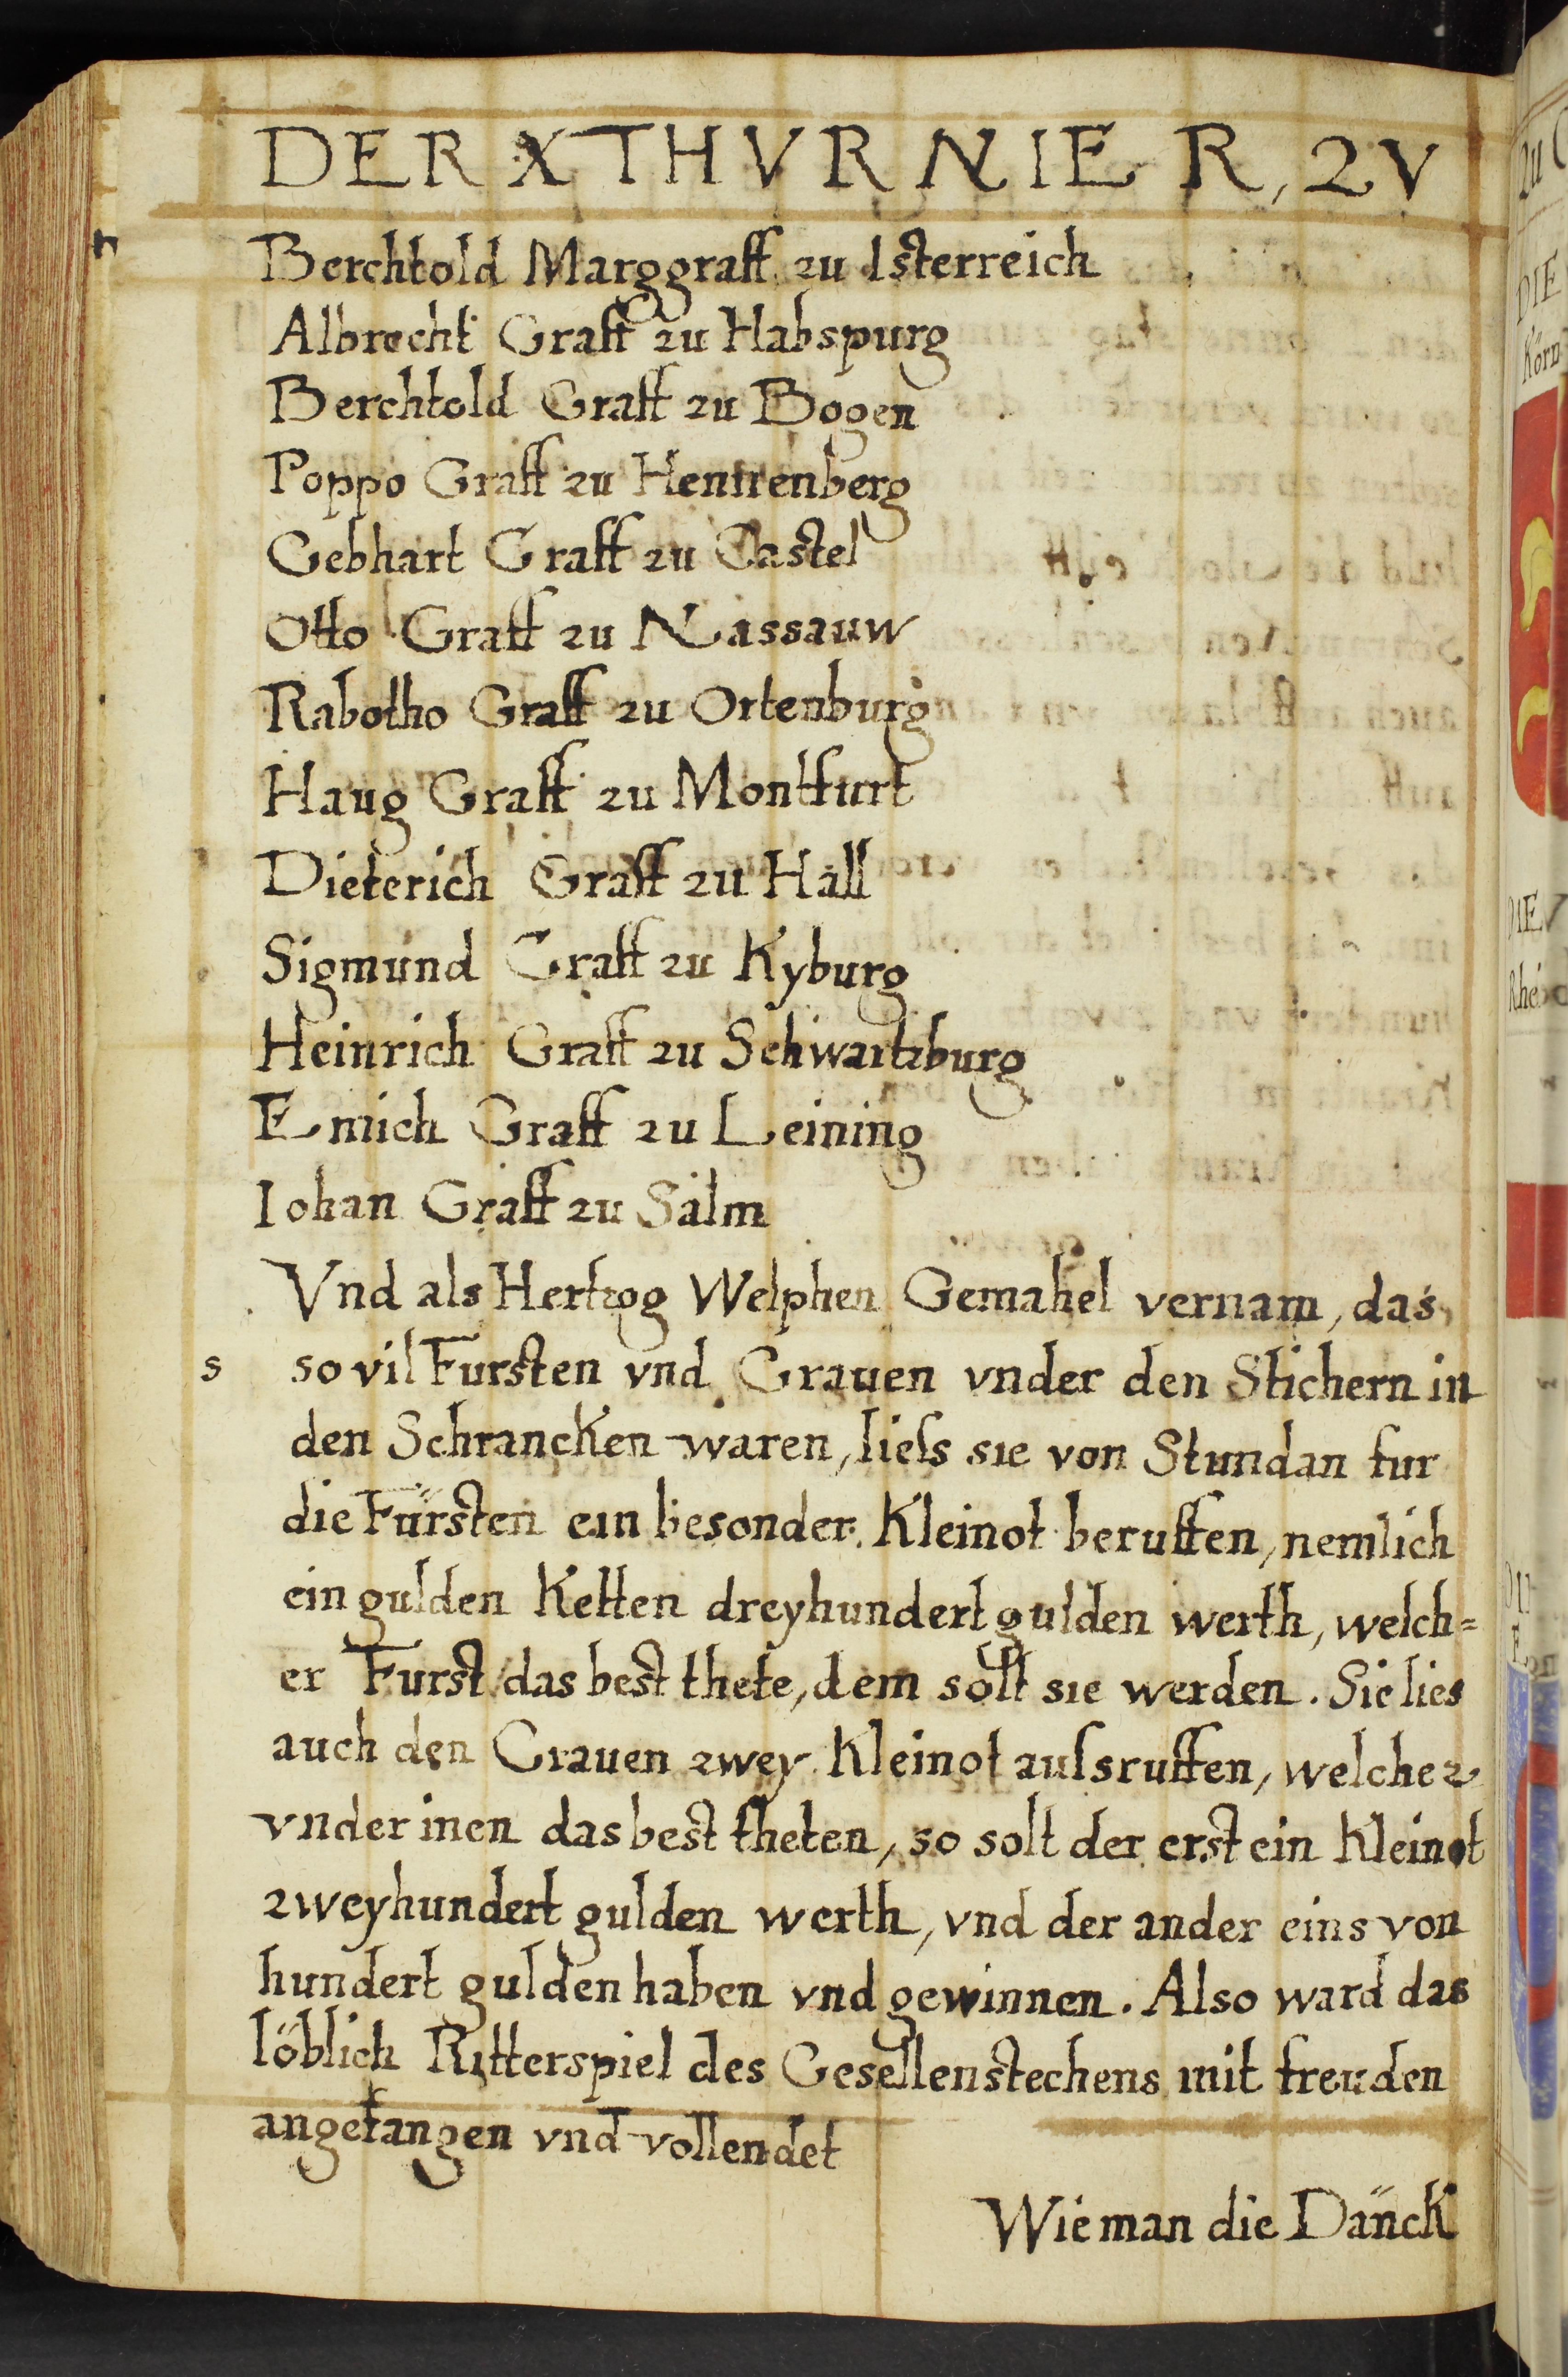 DER X THVRNIER, ZV
Berchtold Marggraff zu Isterreich
Albrecht Graff zu Habspurg
Berchtold Graff zu Bogen
Poppo Graff zu Hennenberg
Gebhart Graff zu Castel
Otto Graff zu Nassauw
Rabotho Graff zu Ortenburg
Haug Graff zu Montfurt
Dieterich Graff zu Hall
Sigmund Graff zu Kyburg
Heinrich Graff zu Schwartzburg
Emich Graff zu Leining
Iohan Graff zu Salm
Vnd als Hertzog Welphen Gemahel vernam, das
so vil Fursten vnd Grauen vnder den Stichern in
den Schrancken waren, liess sie von Stundan fur
die Fürsten ein besonder Kleinot beruffen, nemlich
ein gulden Ketten dreyhundert gulden werth, welch=
er Furst das best thete, dem solt sie werden. Sie lies
auch den Grauen zwey Kleinot aussruffen, welche 2
vnder inen das best theten, so solt der erst ein Kleinot
zweyhundert gulden werth, vnd der ander eins von
hundert gulden haben vnd gewinnen. Also ward das
löblich Ritterspiel des Gesellenstechens mit freuden
angefangen vnd vollendet
Wie man die Dänck
s
zu
DIE
Körn
DIE V